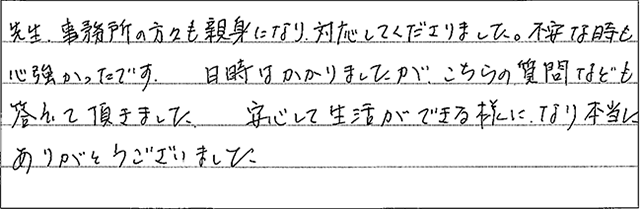 先生、事務所の方々も親身になり、対応してくださりました。不安な時も
心強かったです。 日時はかかりましたが、こちらの質問なども
答えて頂きました。 安心して生活ができる様になり本当に
ありがとうございました。